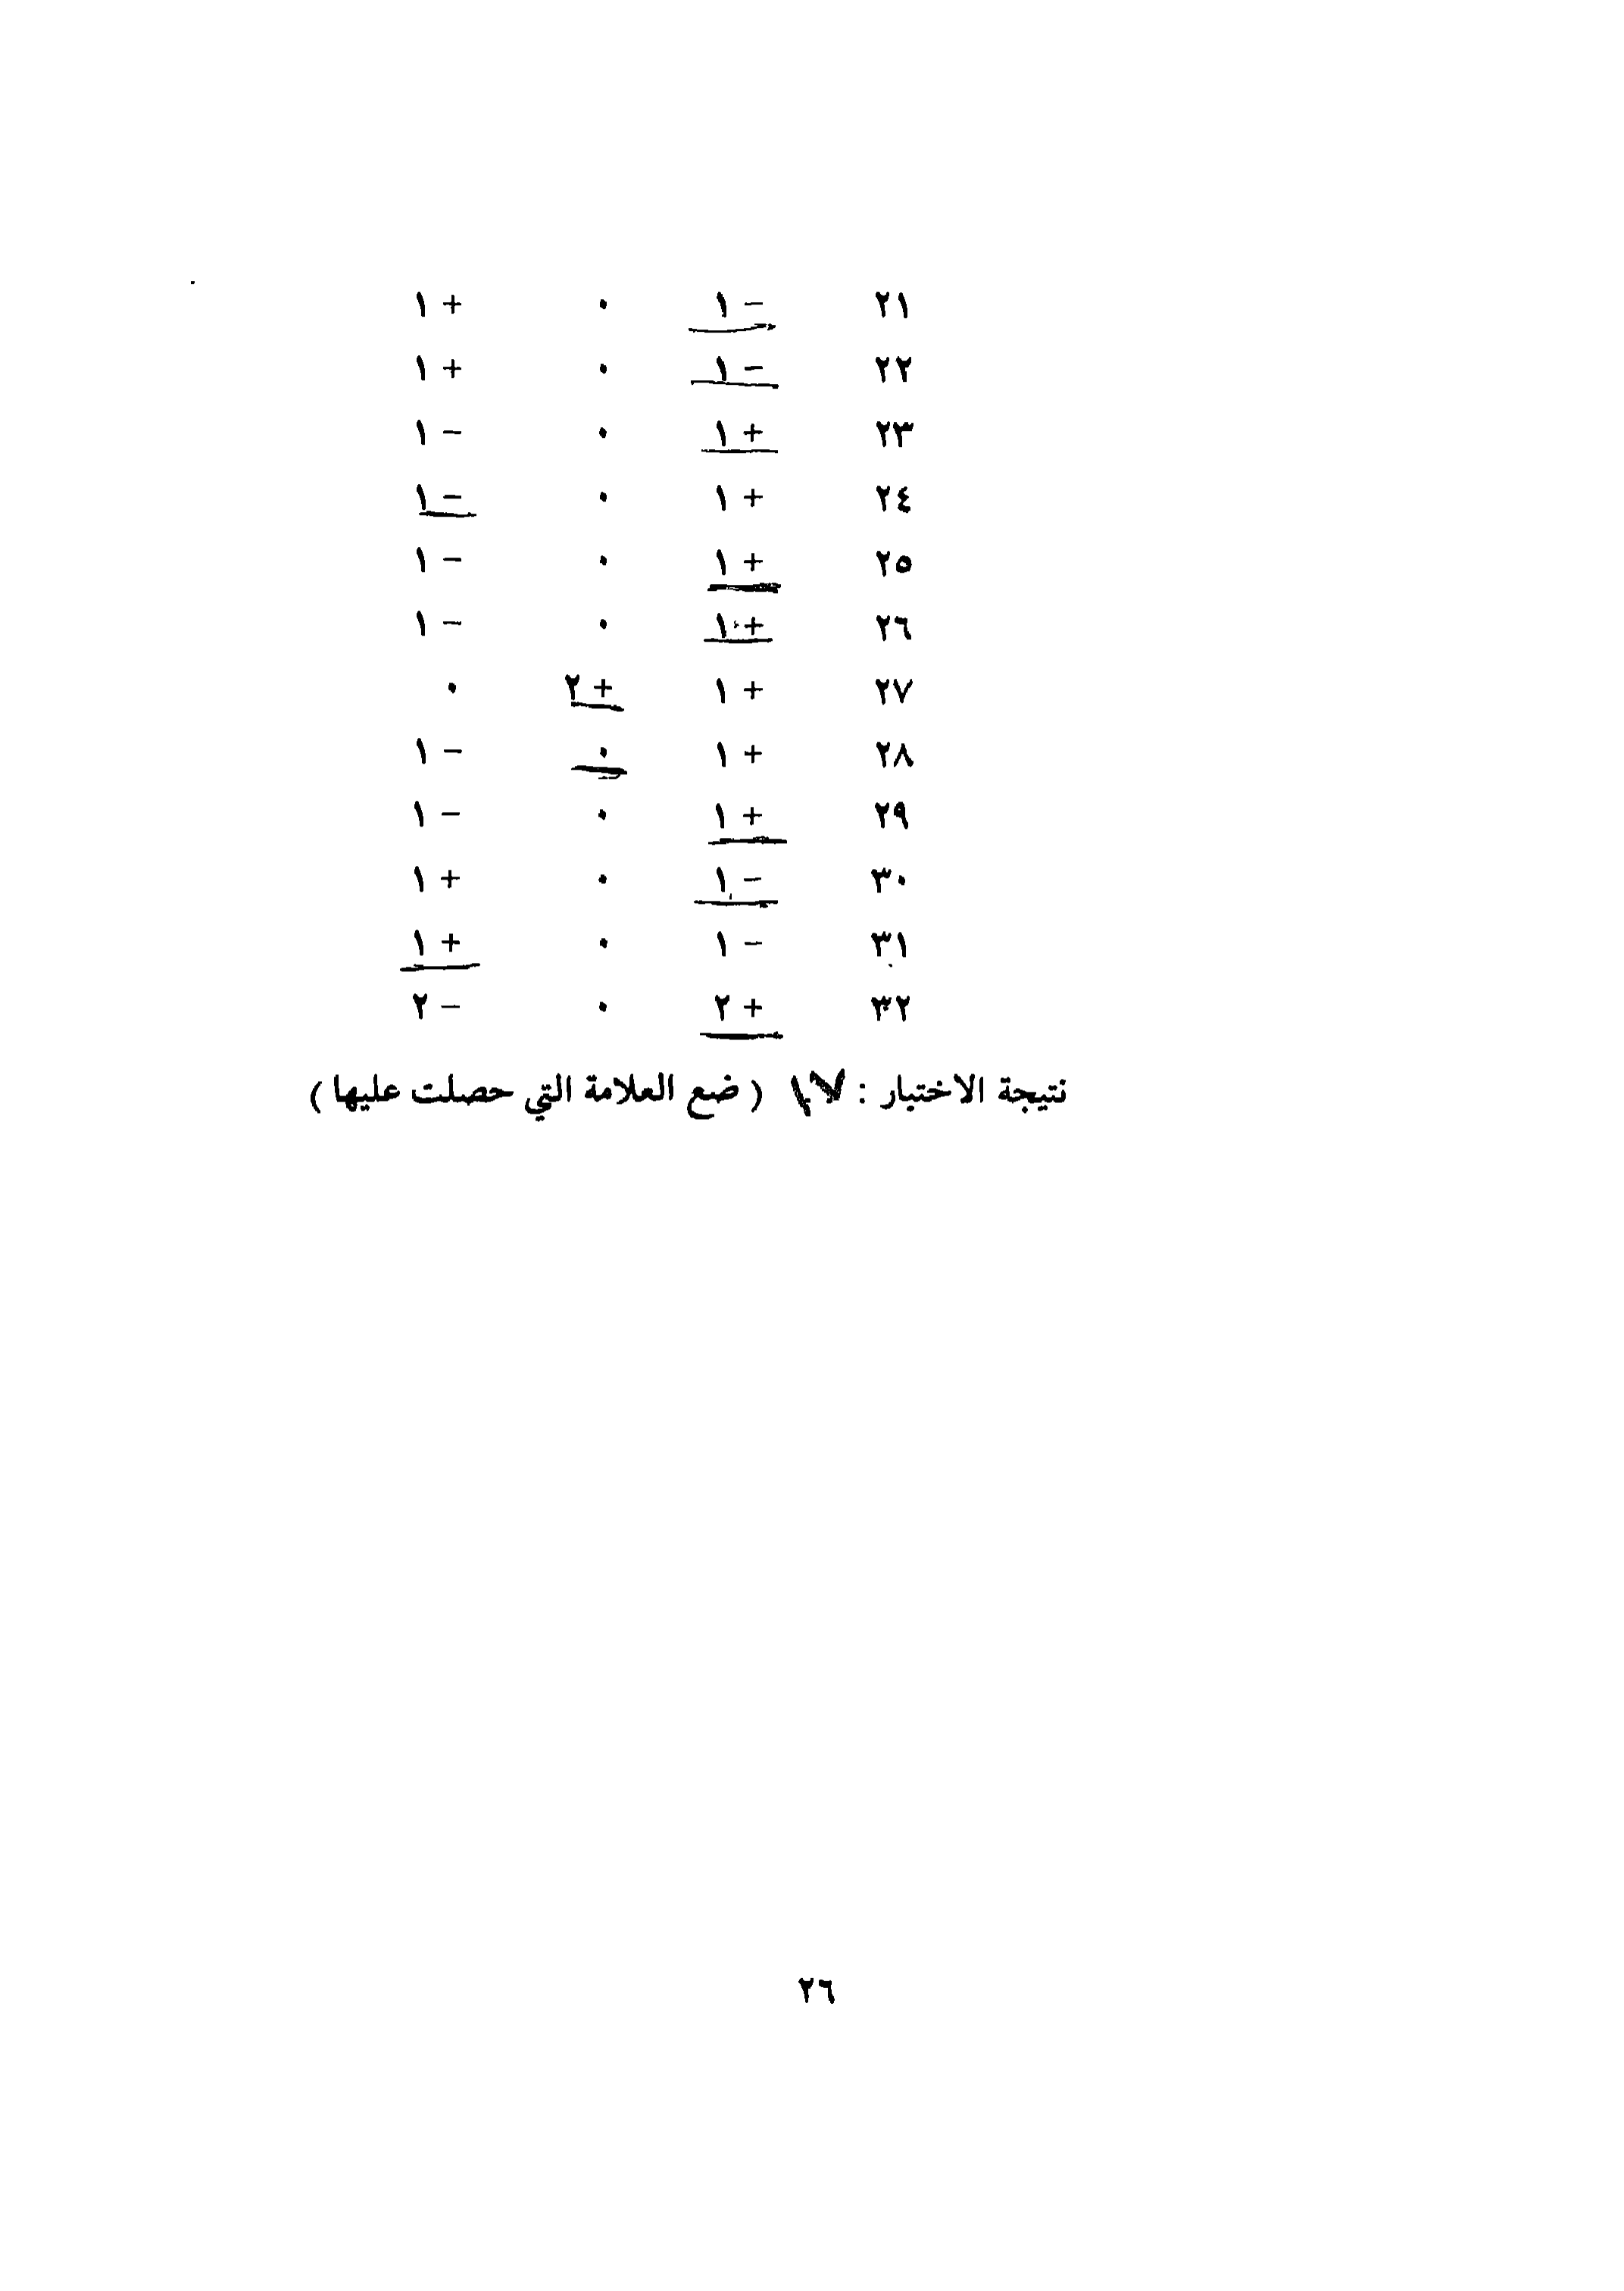 ٢١ − ١ ٠ + ١
٢٢ − ١ ٠ + ١
٢٣ + ١ ٠ − ١
٢٤ + ١ ٠ − ١
٢٥ + ١ ٠ − ١
٢٦ + ١ ٠ − ١
٢٧ + ١ + ٢ ٠
٢٨ + ١ ٠ − ١
٢٩ + ١ ٠ − ١
٣٠ − ١ ٠ + ١
٣١ − ١ ٠ + ١
٣٢ + ٢ ٠ − ٢
نتيجة الاختبار : ١٧ ( ضع العلامة التي حصلت عليها )
٢٦